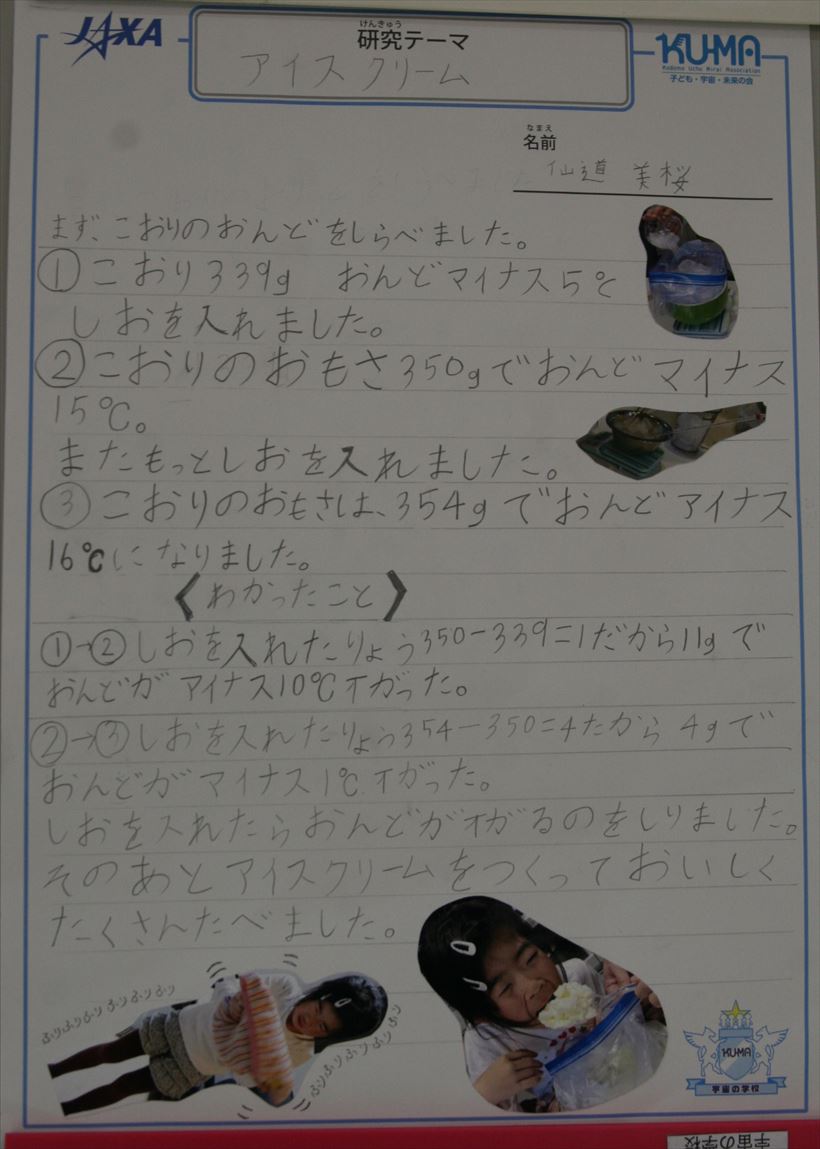 JAXA
けんきゅう
研究テーマ
アイスクリーム
KU-MA
Kodomo Uchu Mirai Association
子ども・宇宙・未来の会
なまえ
名前
仙道 美桜
まず、こおりのおんどをしらべました。
① こおり339g おんどマイナス5℃
しおを入れました。
② こおりのおもさ350gでおんどマイナス
15℃。
またもっとしおを入れました。
③ こおりのおもさは、354gでおんどアイナス
16℃になりました。
《わかったこと》
①→②しおを入れたりょう350-339=1だから11gで
おんどがアイナス10℃下がった。
②→③しおを入れたりょう354-350=4だから4gで
おんどがマイナス1℃下がった。
しおを入れたらおんどが下がるのをしりました。
そのあとアイスクリームをつくっておいしく
たくさんたべました。
ふりふりふりふりふりふり
ふりふりふりふりふりふり
KU-MA
宇宙の学校
宇宙の学校